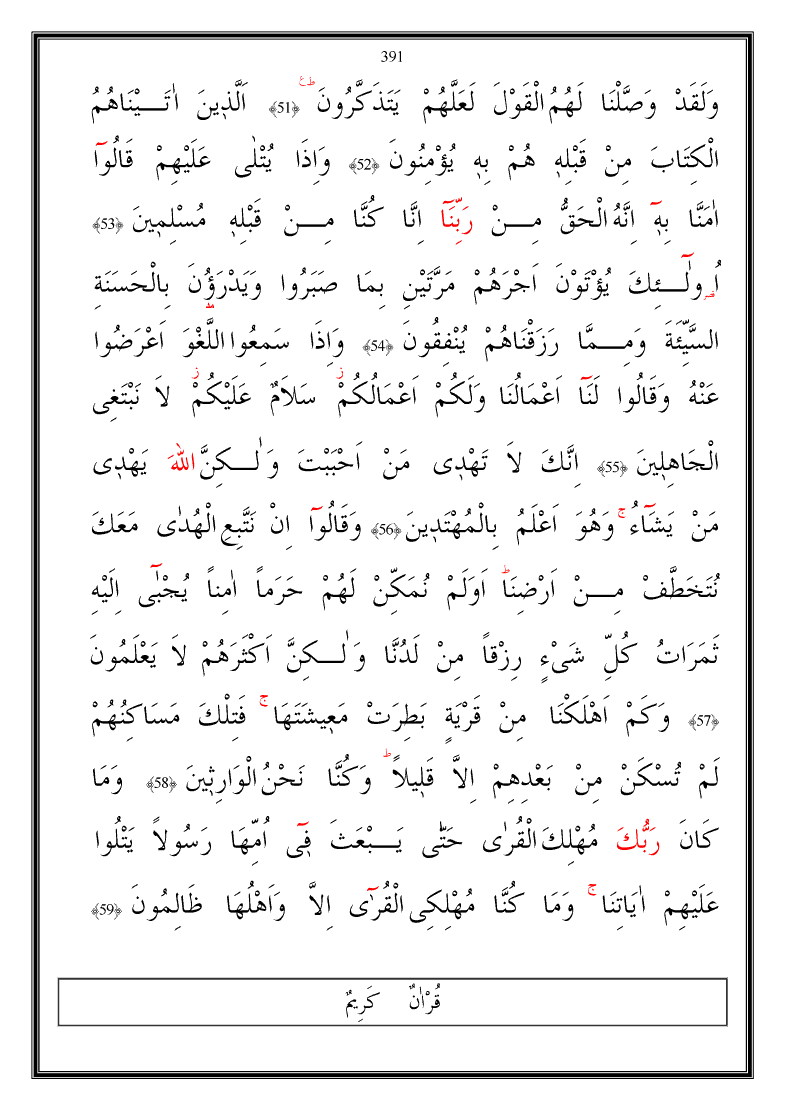 391
وَلَقَدْ وَصَّلْنَا لَهُمُ الْقَوْلَ لَعَلَّهُمْ يَتَذَكَّرُونَ ﴿51﴾ اَلَّذ۪ينَ اٰتَـيْنَاهُمُ
الْكِتَابَ مِنْ قَبْلِه۪ هُمْ بِه۪ يُؤْمِنُونَ ﴿52﴾ وَاِذَا يُتْلٰى عَلَيْهِمْ قَالُوٓا
اٰمَنَّا بِه۪ٓ اِنَّهُ الْحَقُّ مِـنْ رَبِّنَٓا اِنَّا كُنَّا مِـنْ قَبْلِه۪ مُسْلِم۪ينَ ﴿53﴾
اُو۬لٰٓـئِكَ يُؤْتَوْنَ اَجْرَهُمْ مَرَّتَيْنِ بِمَا صَبَرُوا وَيَدْرَؤُ۫نَ بِالْحَسَنَةِ
السَّيِّئَةَ وَمِـمَّا رَزَقْنَاهُمْ يُنْفِقُونَ ﴿54﴾ وَاِذَا سَمِعُوا اللَّغْوَ اَعْرَضُوا
عَنْهُ وَقَالُوا لَنَٓا اَعْمَالُنَا وَلَكُمْ اَعْمَالُكُمْۘ سَلَامٌ عَلَيْكُمْۘ لَا نَبْتَغِى
الْجَاهِل۪ينَ ﴿55﴾ اِنَّكَ لَا تَهْد۪ى مَنْ اَحْبَبْتَ وَلٰـكِنَّ اللّٰهَ يَهْد۪ى
مَنْ يَشَٓاءُۚ وَهُوَ اَعْلَمُ بِالْمُهْتَد۪ينَ ﴿56﴾ وَقَالُوٓا اِنْ نَتَّبِعِ الْهُدٰى مَعَكَ
نُتَخَطَّفْ مِـنْ اَرْضِنَاؕ اَوَلَمْ نُمَكِّنْ لَهُمْ حَرَماً اٰمِناً يُجْبٰٓى اِلَيْهِ
ثَمَرَاتُ كُلِّ شَىْءٍ رِزْقاً مِنْ لَدُنَّا وَلٰـكِنَّ اَكْثَرَهُمْ لَا يَعْلَمُونَ
﴿57﴾ وَكَمْ اَهْلَكْنَا مِنْ قَرْيَةٍ بَطِرَتْ مَع۪يشَتَهَاۚ فَتِلْكَ مَسَاكِنُهُمْ
لَمْ تُسْكَنْ مِنْ بَعْدِهِمْ اِلَّا قَل۪يلاًؕ وَكُنَّا نَحْنُ الْوَارِث۪ينَ ﴿58﴾ وَمَا
كَانَ رَبُّكَ مُهْلِكَ الْقُرٰى حَتّٰى يَـبْعَثَ ف۪ٓى اُمِّهَا رَسُولاً يَتْلُوا
عَلَيْهِمْ اٰيَاتِنَاۚ وَمَا كُنَّا مُهْلِكِى الْقُرٰٓى اِلَّا وَاَهْلُهَا ظَالِمُونَ ﴿59﴾
قُرْاٰنٌ كَرِيمٌ